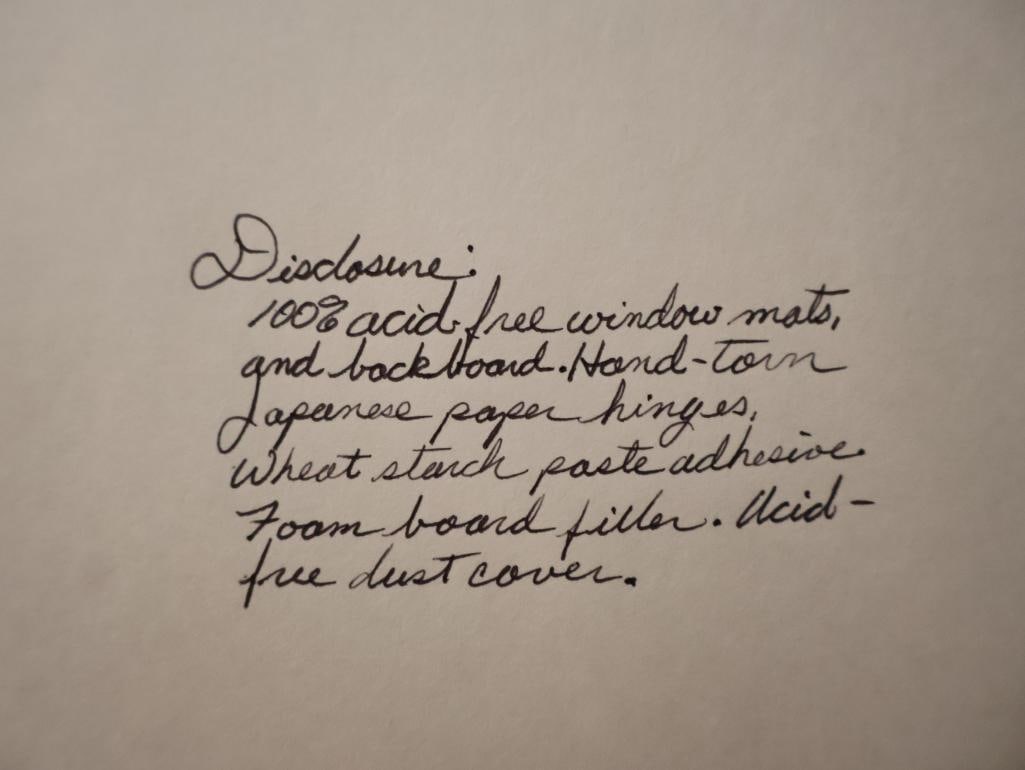 Disclosure:
100% acid free window mats,
and backboard. Hand-torn
Japanese paper hinges.
Wheat starch paste adhesive.
Foam board filler. Acid-
free dust cover.